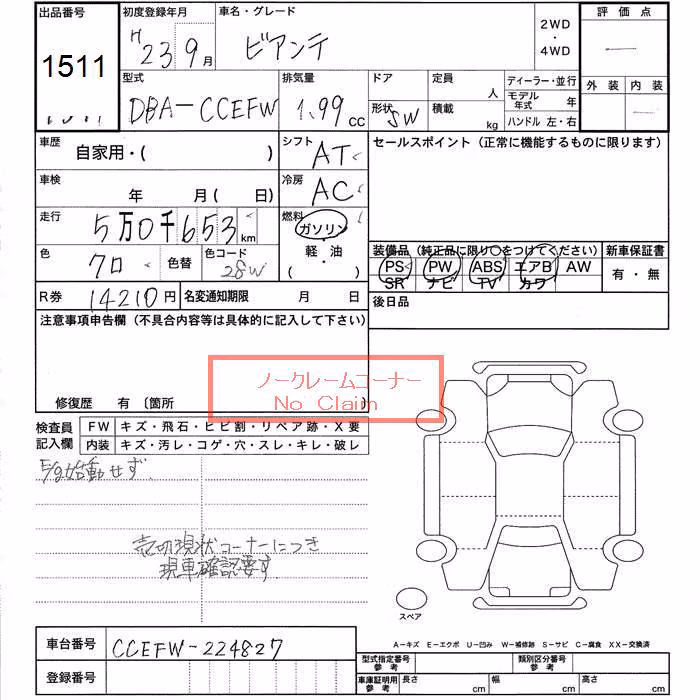 出品番号 初度登録年月 車名・グレード 2WD ・ 4WD 評価点
1511 H 23 9月 ビアンテ
外装 内装
型式 排気量 ドア 定員 人 ディーラー・並行
DBA-CCEFW 1.99 CC 形状 SW 積載 kg モデル年式 年
ハンドル 左・右
車歴 自家用・( ) シフト AT セールスポイント(正常に機能するものに限ります)
車検 年 月(日) 冷房 AC
走行 5万0千653 km 燃料 ガソリン
色 クロ 色替 色コード 28W 軽・油 ( )
装備品(純正品に限り○をつけてください) 新車保証書
PS PW ABS エアB AW 有・無
SR ナビ TV カワ
R券 14210円 名変通知期限 月 日 後日品
注意事項申告欄(不具合内容等は具体的に記入して下さい)
ノークレームコーナー
No Claim
修復歴 有 〔箇所
検査員記入欄 FW キズ・飛石・ヒビ割・リペア跡・X要
内装 キズ・汚レ・コゲ・穴・スレ・キレ・破レ
始動せず
売切現状コーナーにつき
現車確認要す
スペア
車台番号 CCEFW-224827
登録番号
A-キズ E-エクボ U-凹み W-補修跡 S-サビ C-腐食 XX-交換済
型式指定番号 参考 類別区分番号 参考
車庫証明用 参考 長さ cm 幅 cm 高さ cm